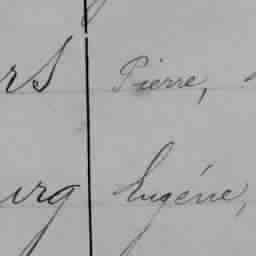 rs Pierre,
urg Eugénie,